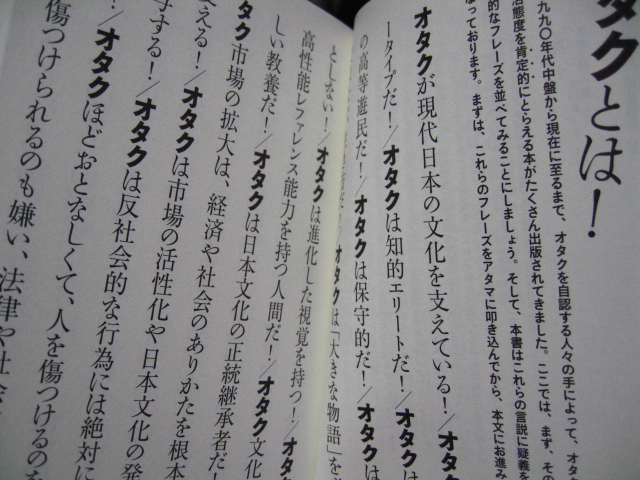 オタクとは!
九九〇年代中盤から現在に至るまで、オタクを自認する人々の手によって、オタ
活態度を肯定的にとらえる本がたくさん出版されてきました。ここでは、まず、その
的なフレーズを並べてみることにしましょう。そして、本書はこれらの言説に疑義を
なっております。まずは、これらのフレーズをアタマに叩き込んでから、本文にお進み
オタクが現代日本の文化を支えている!/オタク
ータイプだ!/オタクは知的エリートだ!/オタクは
の高等遊民だ!/オタクは保守的だ!/オタクは
オタクは「大きな物語」を
としない!/オタクは進化した視覚を持つ!/オタ
高性能レファレンス能力を持つ人間だ!/オタク
しい教養だ!/オタクは日本文化の正統継承者だ!
オタク市場の拡大は、経済や社会のありかたを根本
える!/オタクは市場の活性化や日本文化の発
する!/オタクは反社会的な行為には絶対に
オタクほどおとなしくて、人を傷つけるのを
傷つけられるのも嫌い、法律や社会